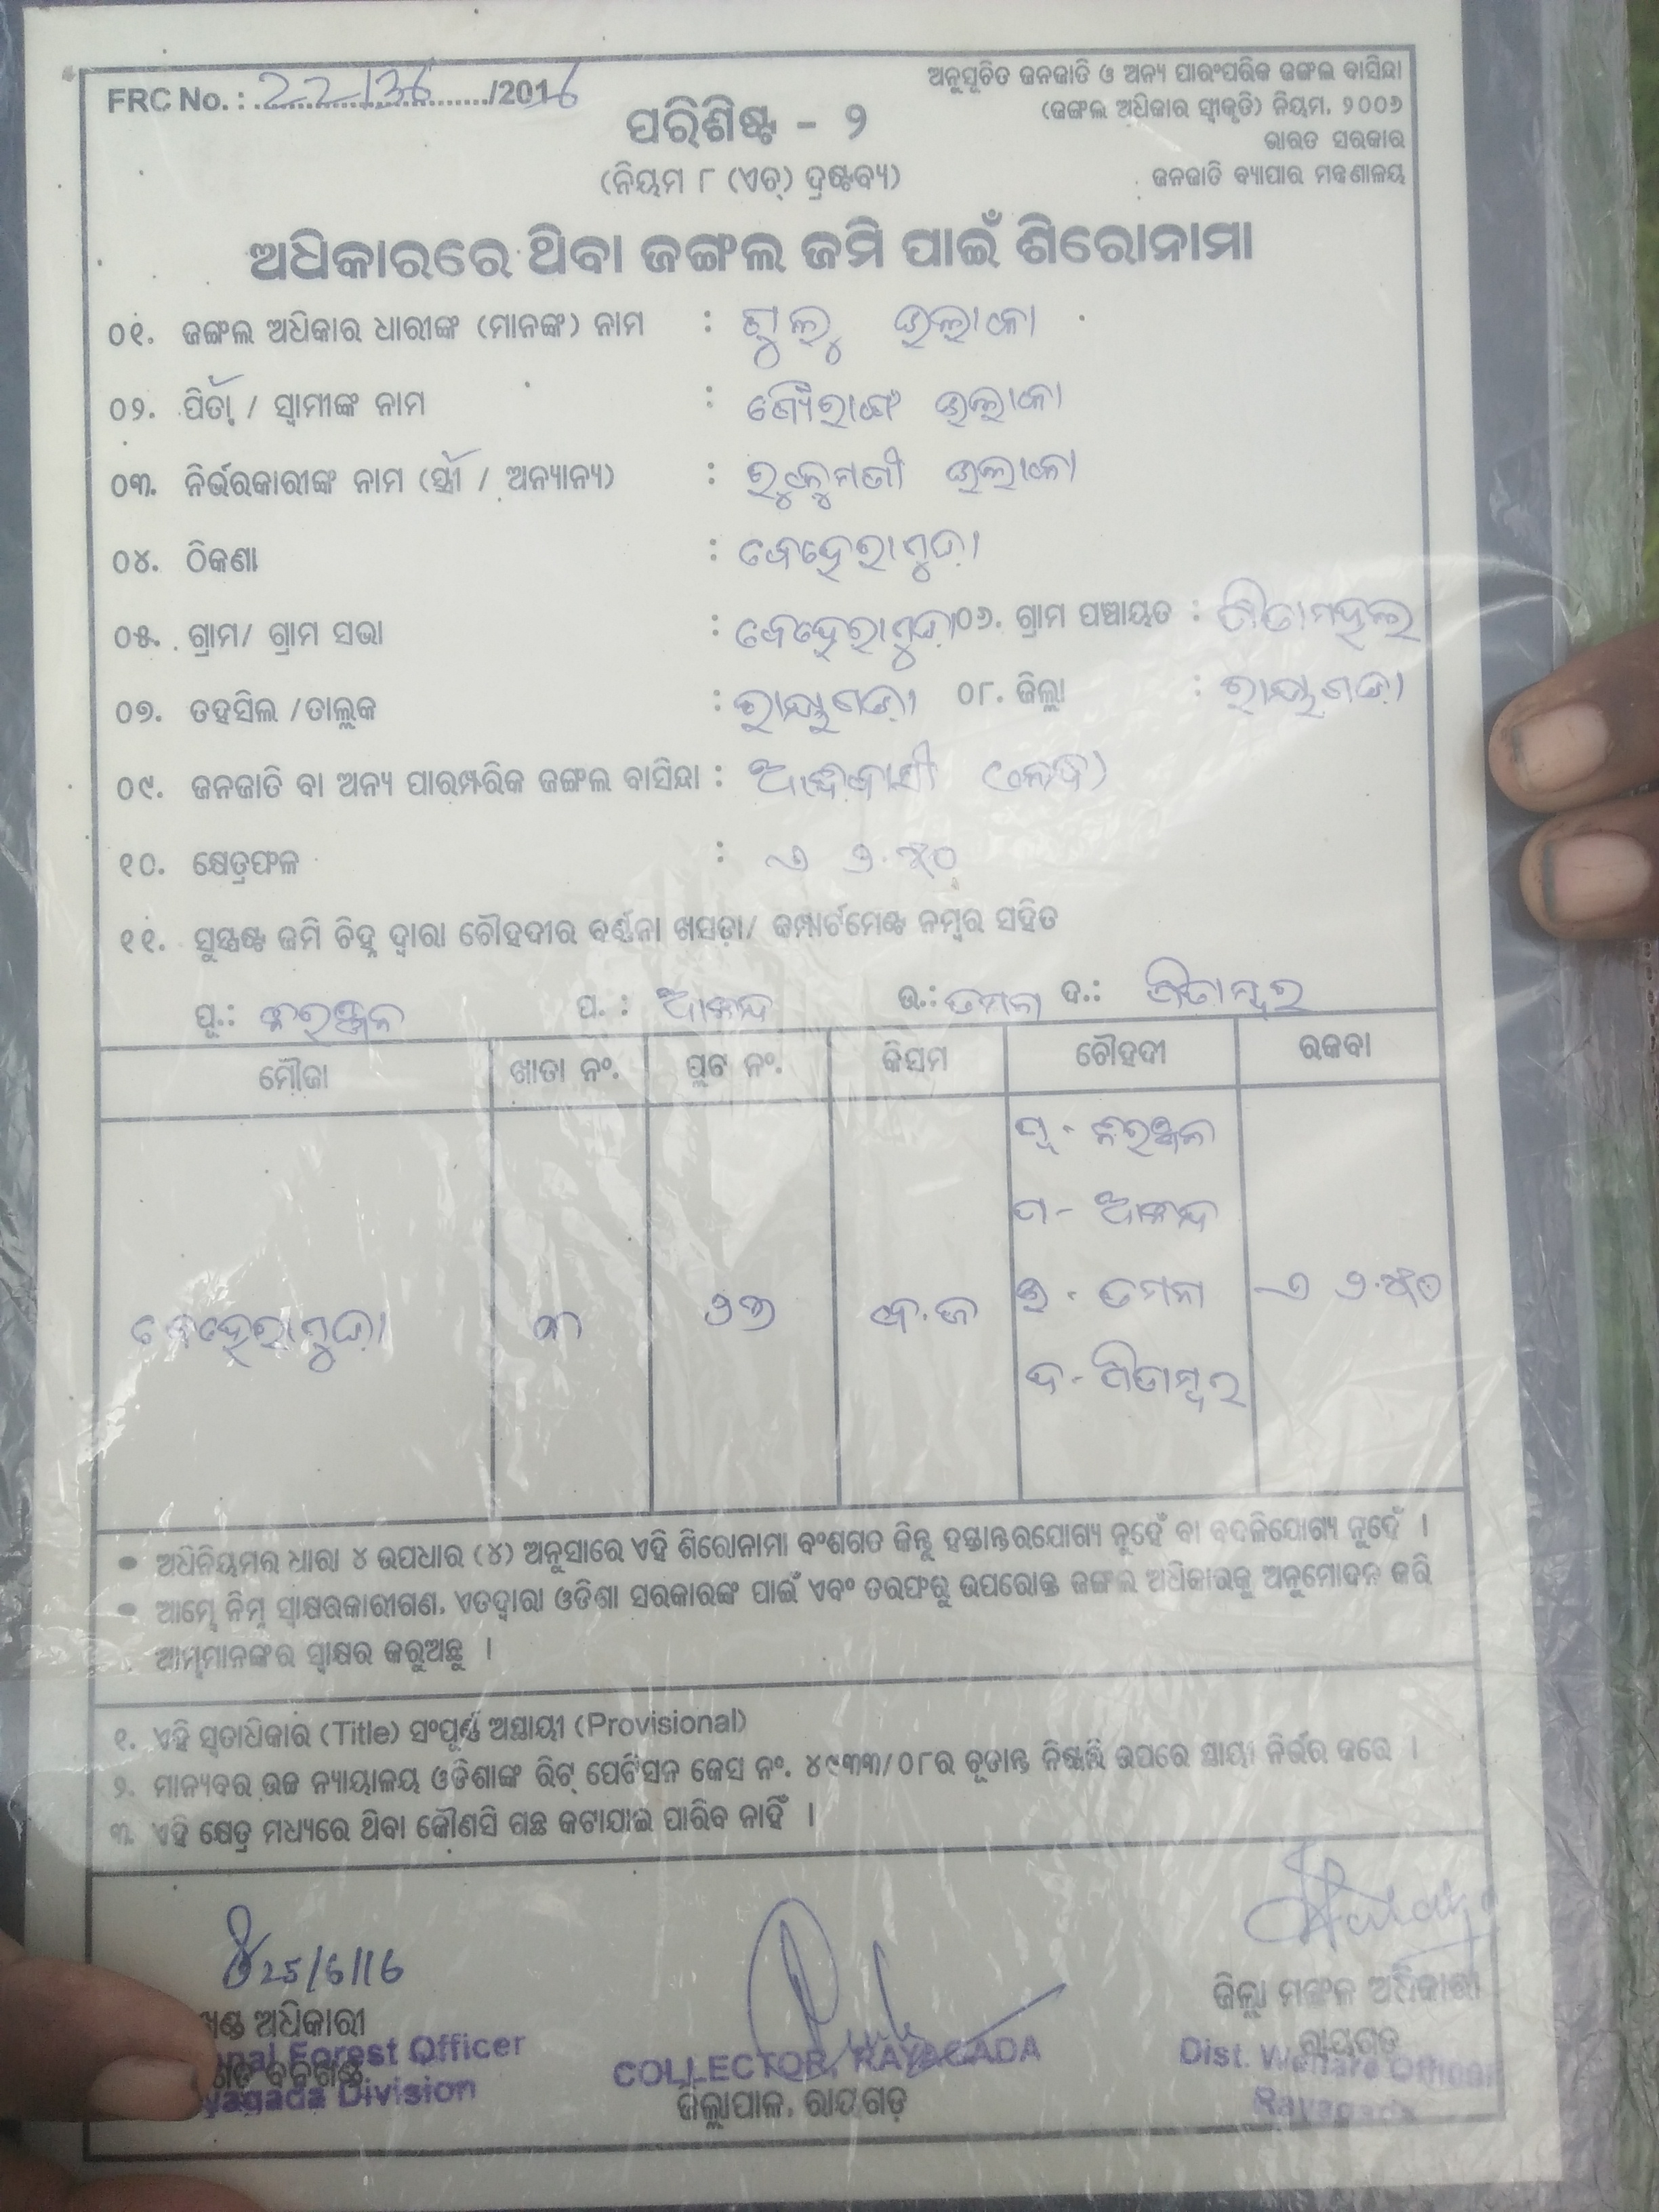 FRC No. : 22136/2016
ଅନୁସୂଚିତ ଜନଜାତି ଓ ଅନ୍ୟ ପାରଂପରିକ ଜଙ୍ଗଲ ବାସିନ୍ଦା
(ଜଙ୍ଗଲ ଅଧିକାର ସ୍ୱୀକୃତି) ନିୟମ, ୨୦୦୬
ଭାରତ ସରକାର
ଜନଜାତି ବ୍ୟାପାର ମନ୍ତ୍ରଣାଳୟ
ପରିଶିଷ୍ଟ - ୨
(ନିୟମ ୮ (ଏଚ୍) ଦ୍ରଷ୍ଟବ୍ୟ)
ଅଧିକାରରେ ଥିବା ଜଙ୍ଗଲ ଜମି ପାଇଁ ଶିରୋନାମା
୦୧. ଜଙ୍ଗଲ ଅଧିକାର ଧାରୀଙ୍କ (ମାନଙ୍କ) ନାମ : ଉଲାକା
୦୨. ପିତା / ସ୍ୱାମୀଙ୍କ ନାମ : ଉଲାକା
୦୩. ନିର୍ଭରକାରୀଙ୍କ ନାମ (ସ୍ତ୍ରୀ / ଅନ୍ୟାନ୍ୟ) : ରୁକୁମଣୀ ଉଲାକା
୦୪. ଠିକଣା : ବେହେରାଗୁଡ଼ା
୦୫. ଗ୍ରାମ/ ଗ୍ରାମ ସଭା : ବେହେରାଗୁଡ଼ା ୦୬. ଗ୍ରାମ ପଞ୍ଚାୟତ : ପିତାମହଲ
୦୭. ତହସିଲ /ତାଲୁକ : ରାୟଗଡ଼ା ୦୮. ଜିଲ୍ଲା : ରାୟଗଡ଼ା
୦୯. ଜନଜାତି ବା ଅନ୍ୟ ପାରମ୍ପରିକ ଜଙ୍ଗଲ ବାସିନ୍ଦା : ଆଦିବାସୀ (କୋନ୍ଧ)
୧୦. କ୍ଷେତ୍ରଫଳ : ୨.୫୦
୧୧. ସୁସ୍ପଷ୍ଟ ଜମି ଚିହ୍ନ ଦ୍ୱାରା ଚୌହଦୀର ବର୍ଣ୍ଣନା ଖସଡ଼ା/ କମ୍ପାର୍ଟମେଣ୍ଟ ନମ୍ବର ସହିତ
ପୂ.: ନିରଞ୍ଜନ ପ. : ଆନନ୍ଦ ଉ.: ଡମନା ଦ.: ପିତାମ୍ବର
ମୌଜା ଖାତା ନଂ. ପ୍ଲଟ ନଂ. କିସମ ଚୌହଦୀ ରକବା
ପୂ - ନିରଞ୍ଜନ
ପ - ଆନନ୍ଦ
ବେହେରାଗୁଡ଼ା ୩ ୨୭ ବ.ଜ ଉ - ଡମନା ୨.୫୦
ଦ - ପିତାମ୍ବର
• ଅଧିନିୟମର ଧାରା ୪ ଉପଧାରା (୪) ଅନୁସାରେ ଏହି ଶିରୋନାମା ବଂଶଗତ କିନ୍ତୁ ହସ୍ତାନ୍ତରଯୋଗ୍ୟ ନୁହେଁ ବା ବଦଳିଯୋଗ୍ୟ ନୁହେଁ ।
• ଆମ୍ଭେ ନିମ୍ନ ସ୍ୱାକ୍ଷରକାରୀଗଣ, ଏତଦ୍ୱାରା ଓଡିଶା ସରକାରଙ୍କ ପାଇଁ ଏବଂ ତରଫରୁ ଉପରୋକ୍ତ ଜଙ୍ଗଲ ଅଧିକାରକୁ ଅନୁମୋଦନ କରି
ଆମ୍ଭମାନଙ୍କର ସ୍ୱାକ୍ଷର କରୁଅଛୁ ।
୧. ଏହି ସ୍ୱତାଧିକାର (Title) ସଂପୂର୍ଣ୍ଣ ଅସ୍ଥାୟୀ (Provisional)
୨. ମାନ୍ୟବର ଉଚ୍ଚ ନ୍ୟାୟାଳୟ ଓଡିଶାଙ୍କ ରିଟ୍ ପେଟିସନ କେସ ନଂ. ୪୯୩୩/୦୮ର ଚୂଡାନ୍ତ ନିଷ୍ପତ୍ତି ଉପରେ ସ୍ଥାୟୀ ନିର୍ଭର କରେ ।
୩. ଏହି କ୍ଷେତ୍ର ମଧ୍ୟରେ ଥିବା କୌଣସି ଗଛ କଟାଯାଇ ପାରିବ ନାହିଁ ।
25/6/16
ଖଣ୍ଡ ଅଧିକାରୀ
ବନଖଣ୍ଡ
onal Forest Officer
yagada Division
COLLECTOR, RAYAGADA
ଜିଲ୍ଲାପାଳ, ରାୟଗଡ଼
ଜିଲ୍ଲା ମଙ୍ଗଳ ଅଧିକାରୀ
ରାୟଗଡ଼
Dist. Welfare Officer
Rayagada